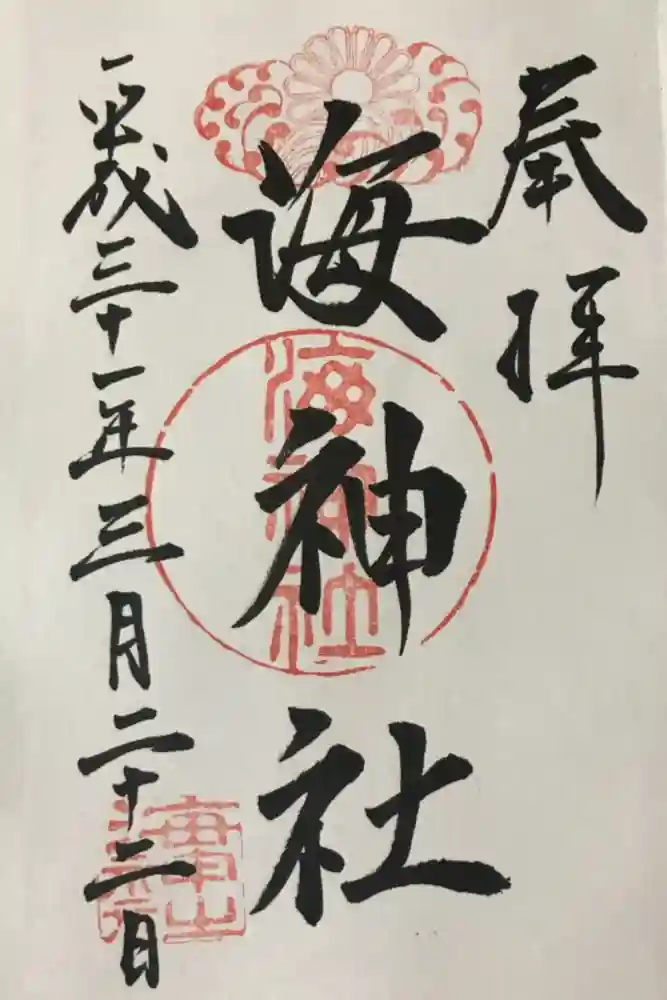 奉拝
海神社
平成三十一年三月二十二日
海神社